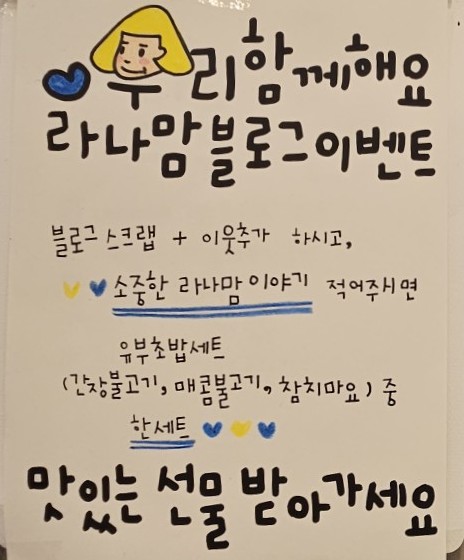 우리함께해요
라나맘블로그이벤트
블로그 스크랩 + 이웃추가 하시고,
소중한 라나맘이야기 적어주시면
유부초밥세트
(간장불고기, 매콤불고기, 참치마요) 중
한세트
맛있는 선물 받아가세요